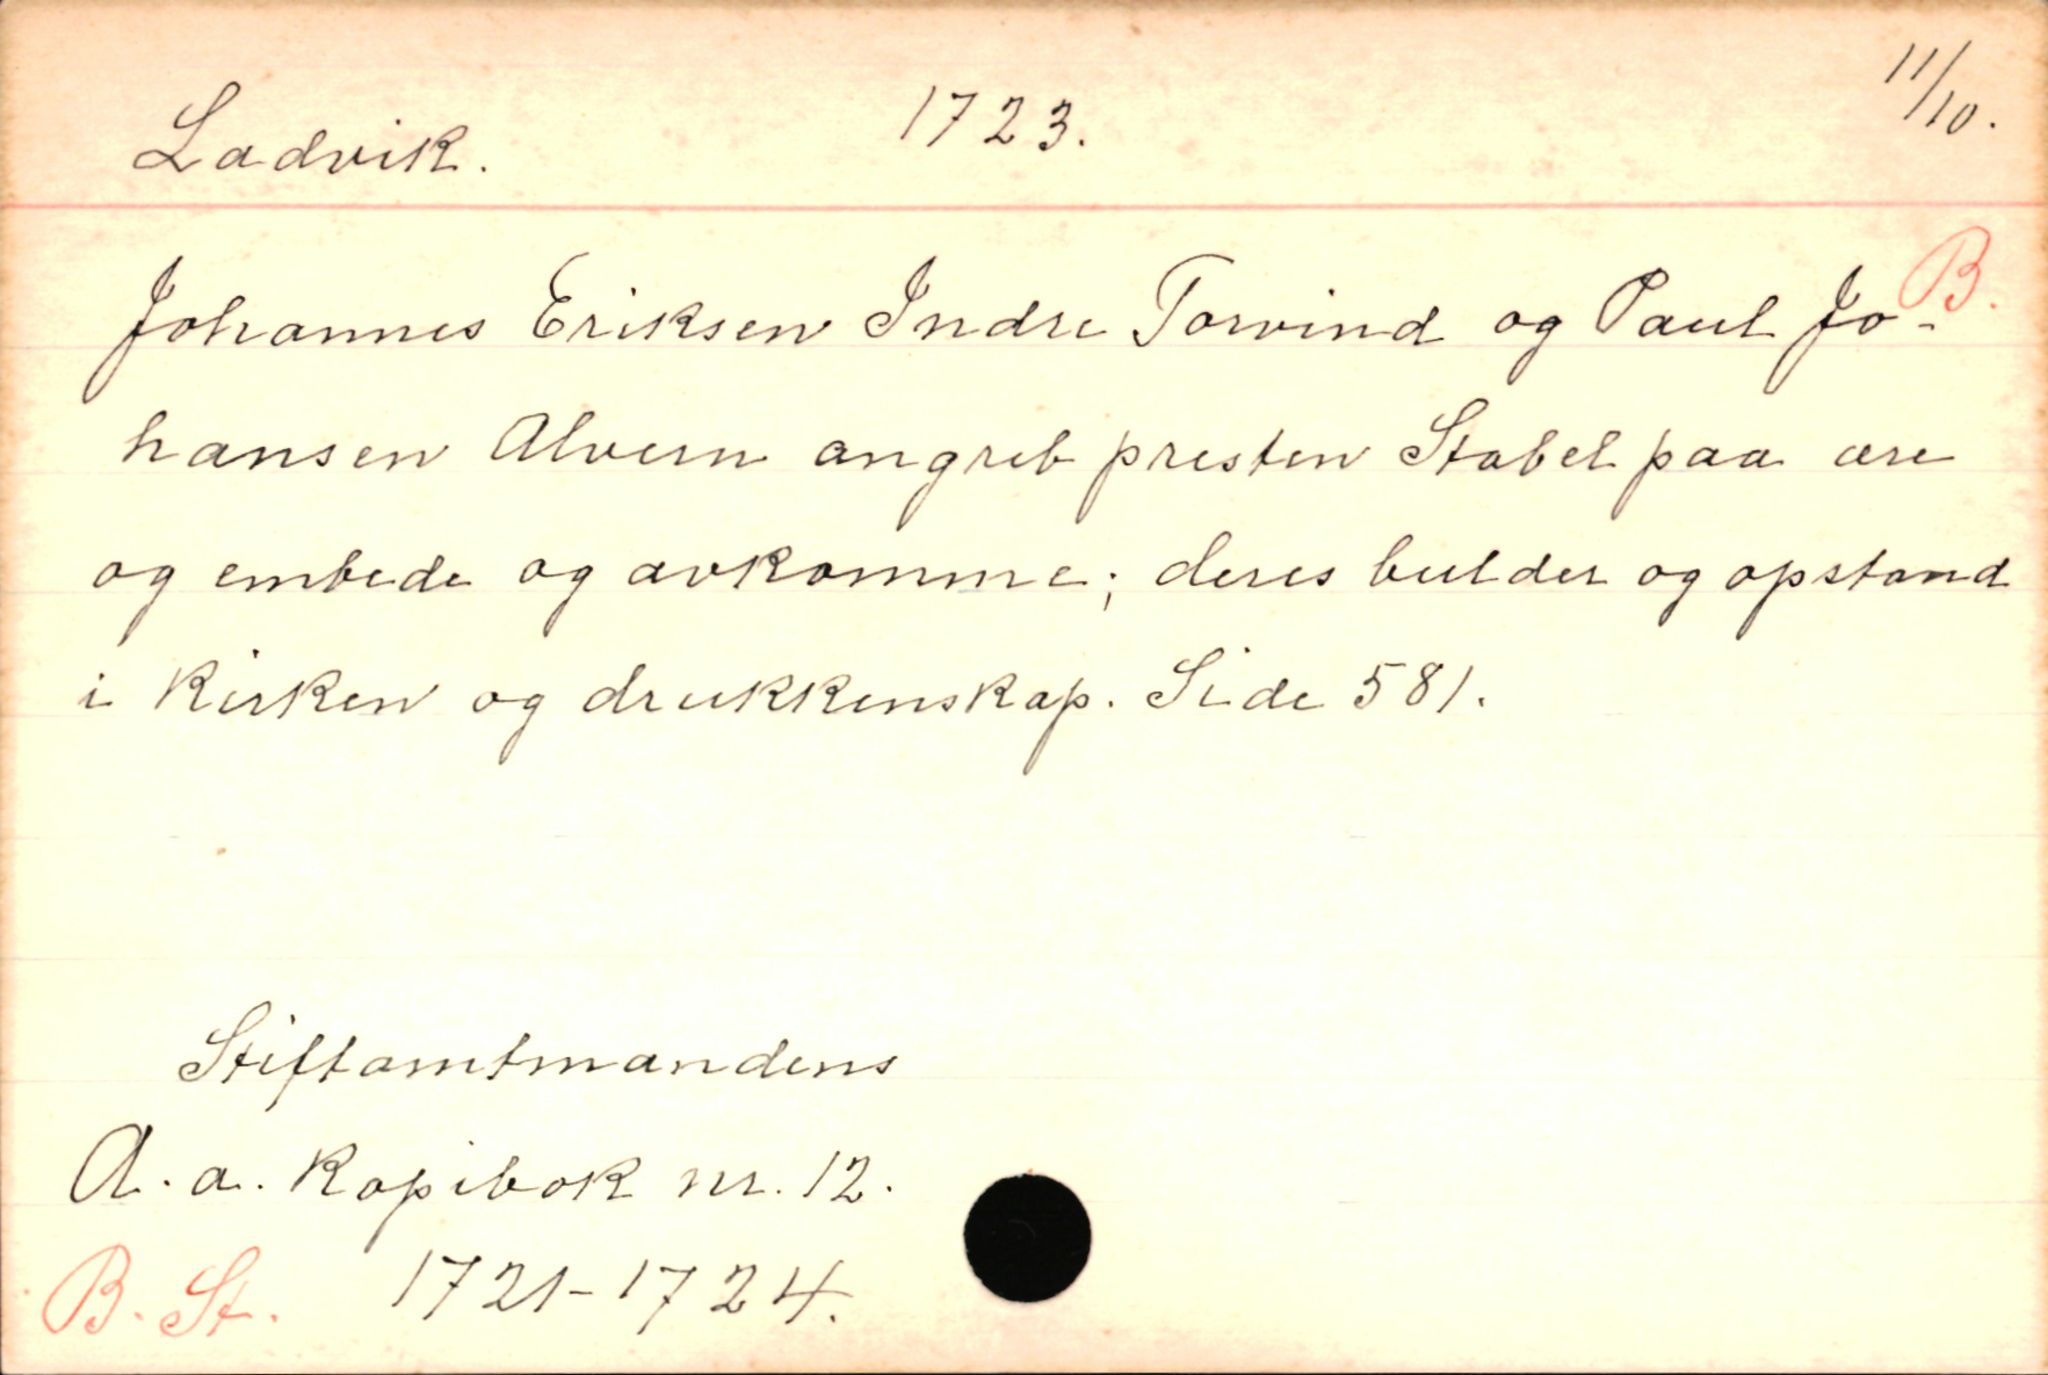 Ladvik. 1723. 11/10.
B.
Johannes Eriksen Indre Torvind og Paul Jo-
hansen Alvern angreb presten Stabel paa ære
og embede og avkomme; deres bulder og opstand
i kirken og drukkenskap. Side 581.
Stiftamtmandens
A. a. Kopibok nr. 12.
B. St. 1721-1724.